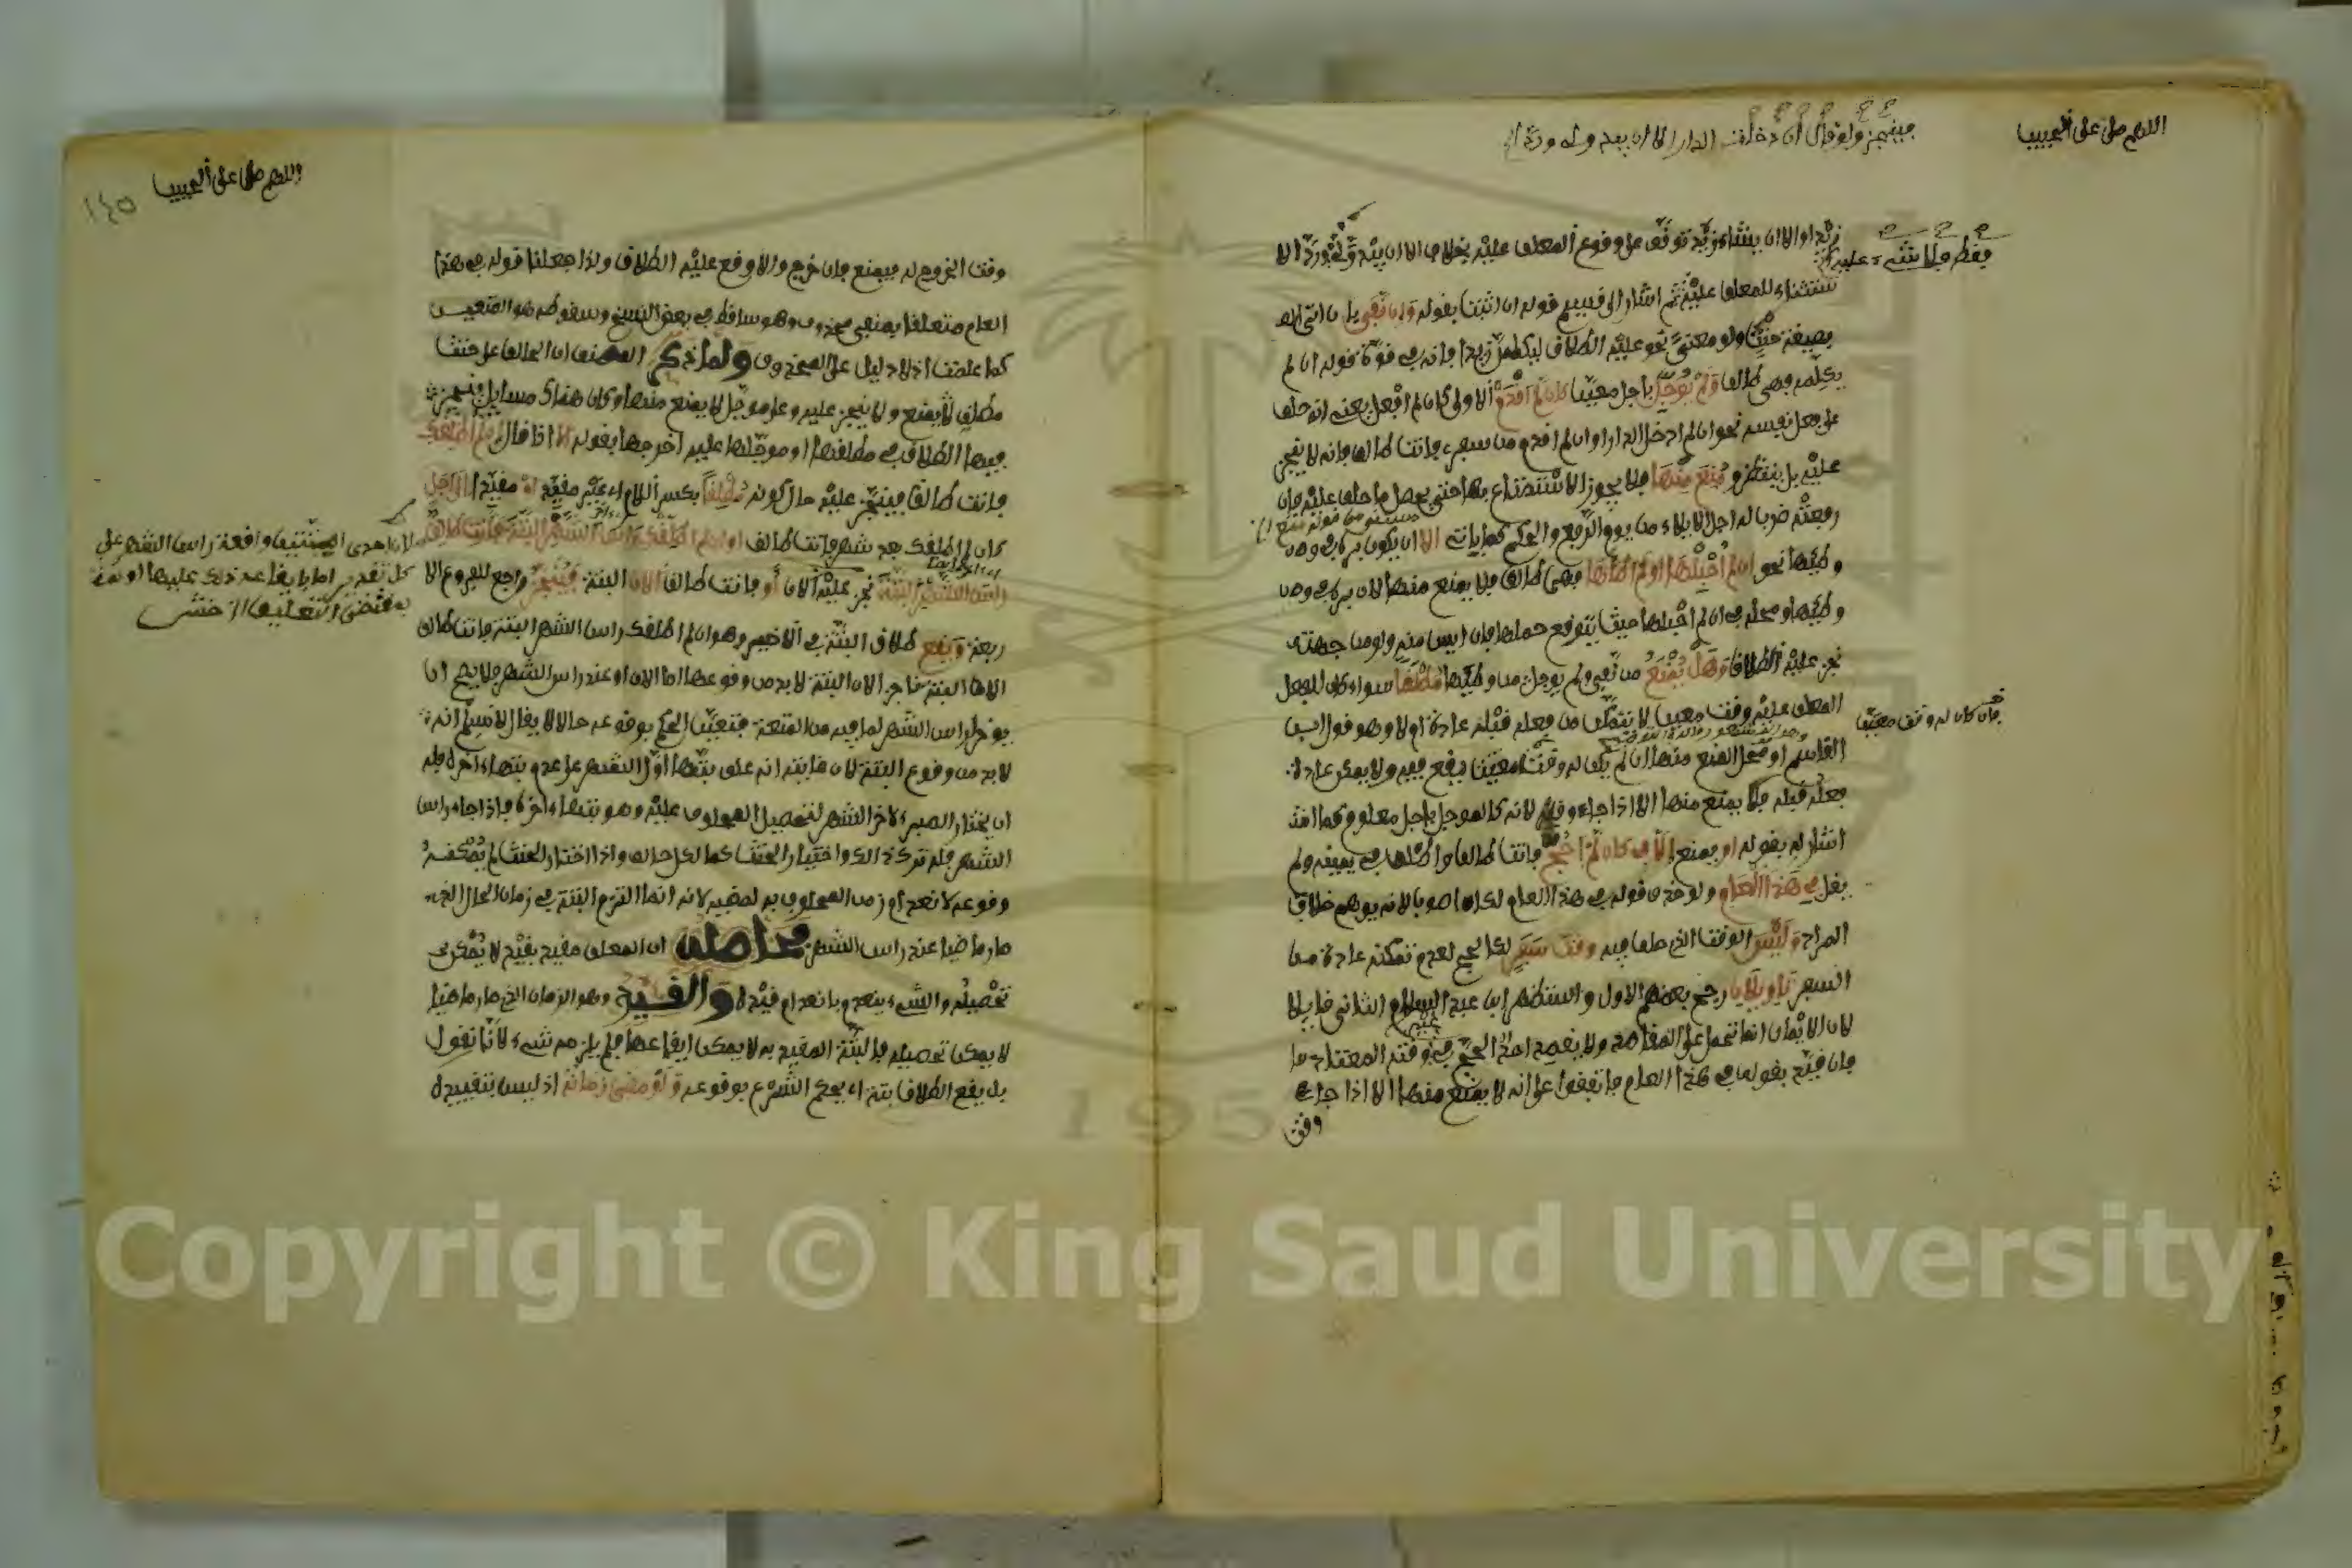 اللهم صل على الحبيب
فينجز ولو قال ان دخلت الدار الا ان يبدو له ورد
زيد او الا ان يشاء زيد توقف على وقوع المعلق عليه بخلاف الا ان يبدو لي ورد الا
فقط فلا شيء عليه
ستثناء للمعلق عليه ثم اشار الى قسيم قوله ان اثبت بقوله وان نفى بان اتى
بصيغة حنث ولو معنى نحو عليه الطلاق ليكلمن زيدا فانه في قوة قوله ان لم
يكلمه فهي طالق ولم يؤجل باجل معين كان لم اقدم الاولى كان لم افعل يعني انه حلف
على فعل نفسه نحو ان لم ادخل الدار او ان لم اقدم من سفري فانت طالق فانه لا ينجز
عليه بل ينتظر و منع منها فلا يجوز الاستمتاع بها حتى يحصل ما حلف عليه فان
رفعته ضرب له اجل الايلاء من يوم الرفع والحكم كما ياتي الا ان يكون بره في
وطئها نحو ان لم احبلها او لم اطاها فهي طالق فلا يمنع منها لان بره في
وطئها ومحله في ان لم احبلها حيث يتوقع حملها فان ايس منه ولو من جهته
نجز عليه الطلاق وهل يمنع من نفى ولم يؤجل من وطئها مطلقا سواء كان للفعل
المعلق عليه وقت معين لا يتمكن من فعله قبله عادة ام لا وهو قول ابن
فان كان له وقت معين
القاسم او محل المنع منها ان لم يكن له وقتا معينا يقع فيه ولا يمكن عادة
فعله قبله فلا يمنع منها الا اذا جاء وقته لانه كالمؤجل باجل معلوم كما
اشار له بقوله او يمنع الا في كان لم احج فانت طالق واطلق في يمينه ولم
يقل في هذا العام ولو حذف قوله في هذا العام لكان اصوب لانه يوهم خلاف
المراد وليس الوقت الذي حلف فيه وقت سفر للحج لعدم تمكنه عادة من
السفر تاويلان رجح بعضهم الاول واستظهر ابن عبد السلام الثاني قايلا
لان الايمان انما تحمل على المقاصد ولا يقصد احد الحج في غير وقته المعتاد
فان قيد بقوله في هذا العام فاتفقوا على انه لا يمنع منها الا اذا جاء
وقت
اللهم صل على الحبيب
١٤٥
وقت الخروج له فيمنع فان خرج والا وقع عليه الطلاق ولذا جعلنا قوله في هذا
العام متعلقا بمنفي محذوف وهو ساقط في بعض النسخ وسقوطه هو المتعين
كما علمت اذ لا دليل على المحذوف ولما ذكر المصنف ان الحالف على حنث
مطلق يمنع ولا ينجز عليه وعلى مؤجل لا يمنع منها وكان هناك مسايل ينجز
فيها الطلاق في مطلقها او مؤجلها عليه اخرجها بقوله الا اذا قال ان لم اطلقك
فانت طالق فينجز عليه حال كونه مطلقا بكسر اللام اي غير مقيد او مقيدا الاجل
كان لم اطلقك بعد شهر فانت طالق او ان لم اطلقك راس الشهر البتة فانت طالق
راس الشهر البتة نجز عليه الان او فانت طالق الان البتة فينجز راجع للفروع الا
لان احدى البتتين واقعة راس الشهر على
كل تقدير اما بايقاعه ذلك عليها او
بمقتضى التعليق از خش
ربعة ويقع طلاق البتة في الاخير وهو ان لم اطلقك راس الشهر البتة فانت طالق
الان البتة ناجز الان البتة لا بد من وقوعها اما الان او عند راس الشهر فلا يصح ان
يؤخر لراس الشهر لما فيه من المتعة فتعين الحكم بوقوعه حالا لا يقال لا نسلم انه
لا بد من وقوع البتة لان غايته انه علق بتها اول الشهر على عدم بتها اخره فله
ان يختار الصبر لاخر الشهر لتحصيل المحلوف عليه وهو بتها اخره فاذا جاء راس
الشهر فله ترك ذلك واختيار الحنث كما لكل حالف واذا اختار الحنث لم يمكن
وقوعه لانعدام زمن المحلوف به لمضيه لانه انما التزم البتة في زمان الحال الذي
صار ماضيا عند راس الشهر فحاصله ان المعلق مقيد بقيد لا يمكن
تحصيله والشيء ينعدم بانعدام قيده والقيد وهو الزمان الذي صار ماضيا
لا يمكن تحصيله فالبتة المقيد به لا يمكن ايقاعها فلم يلزمه شيء لانا نقول
بل يقع الطلاق بتة اي يحكم الشرع بوقوعه ولو مضى زمانه اذ ليس بتقييده